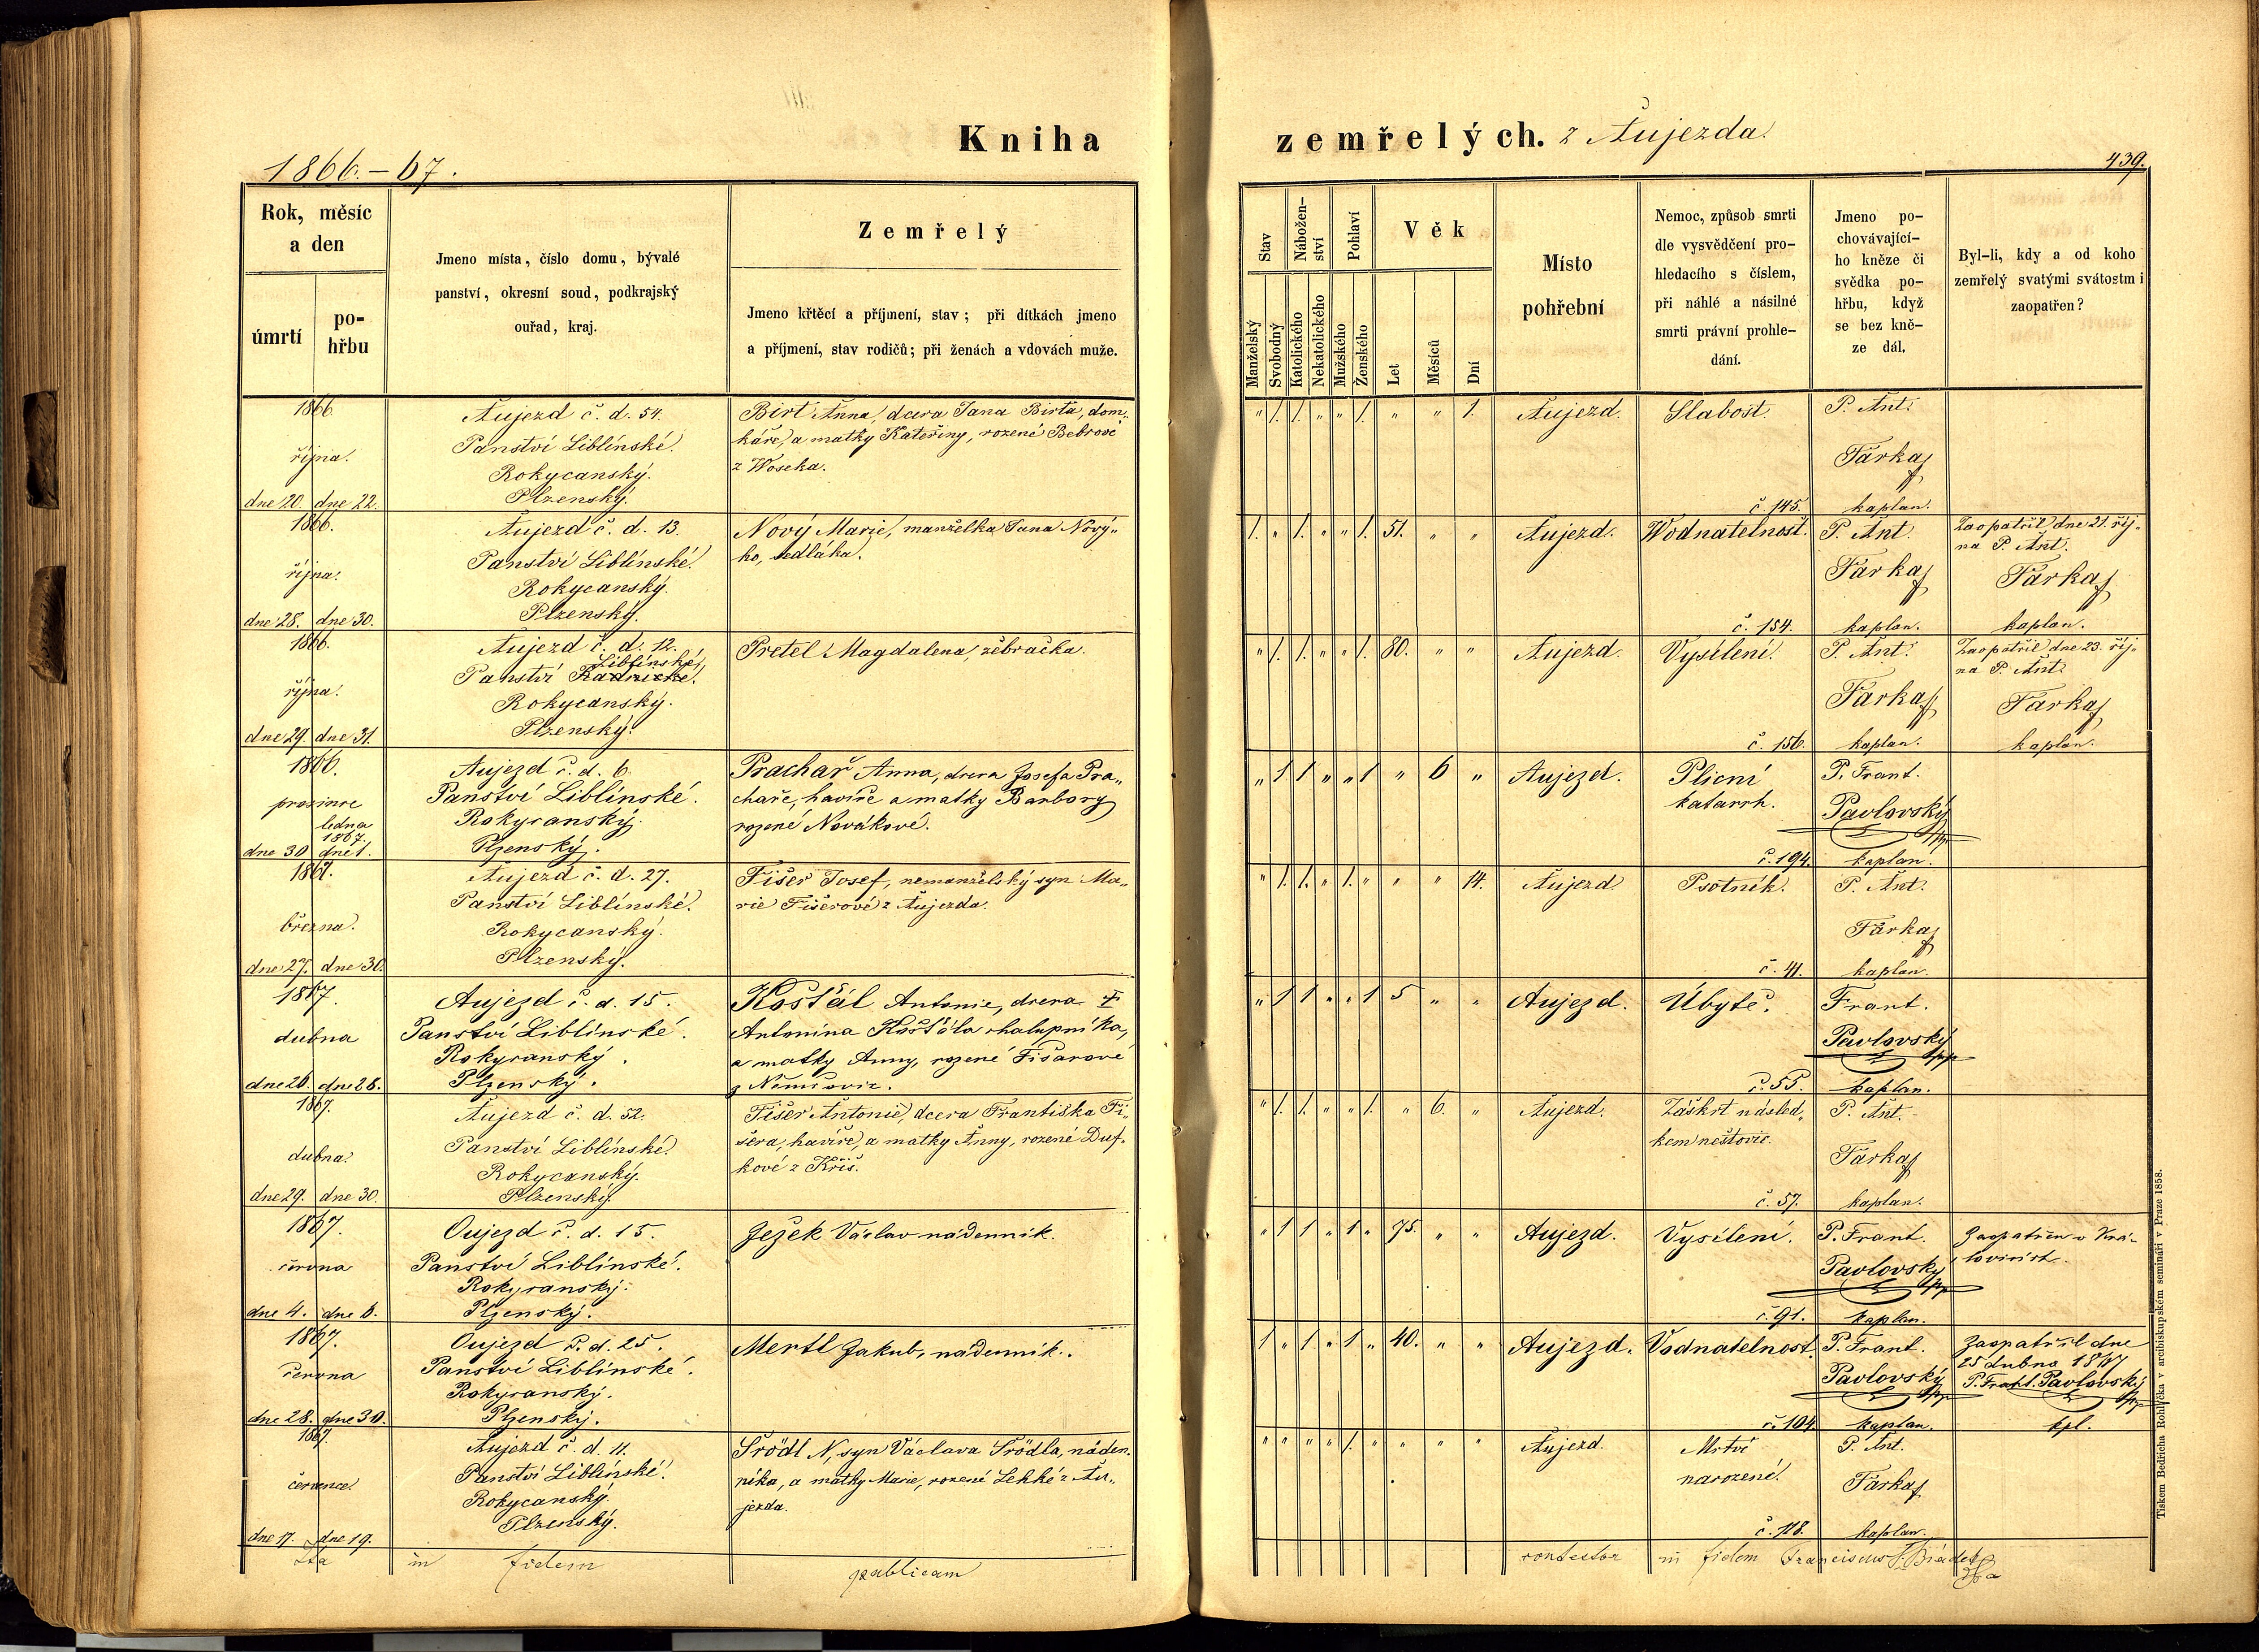 Kniha
zemřelých. z Aujezda.
1866.-67.
439.
Rok, měsíc
a den
úmrtí
po-
hřbu
Jmeno místa, číslo domu, bývalé
panství, okresní soud, podkrajský
ouřad, kraj.
Zemřelý
Jmeno křtěcí a příjmení, stav; při dítkách jmeno
a příjmení, stav rodičů; při ženách a vdovách muže.
Stav
Nábožen-
ství
Pohlaví
Věk
Manželský
Svobodný
Katolického
Nekatolického
Mužského
Ženského
Let
Měsíců
Dní
Místo
pohřební
Nemoc, způsob smrti
dle vysvědčení pro-
hledacího s číslem,
při náhlé a násilné
smrti právní prohle-
dání.
Jmeno po-
chovávající-
ho kněze či
svědka po-
hřbu, když
se bez kně-
ze dál.
Byl-li, kdy a od koho
zemřelý svatými svátostmi
zaopatřen?
1866
října.
dne 20. dne 22.
Aujezd č. d. 54.
Panství Liblínské.
Rokycanský.
Plzenský.
Birt Anna, dcera Jana Birta, dom-
káře, a matky Kateřiny, rozené Bebrové
z Woseka.
" 1. 1. " " 1. " " 1.
Aujezd.
Slabost.
č. 145.
P. Ant.
Farkaš
kaplan.
1866.
října.
dne 28. dne 30.
Aujezd č. d. 13.
Panství Liblínské.
Rokycanský.
Plzenský.
Nový Marie, manželka Jana Nový-
ho, sedláka.
1. " 1. " " 1. 51. " "
Aujezd.
Wodnatelnost.
č. 154.
P. Ant.
Farkaš
kaplan.
Zaopatřil dne 21. říj-
na P. Ant.
Farkaš
kaplan.
1866.
října.
dne 29. dne 31.
Aujezd č. d. 12.
Liblínské
Panství Radnické.
Rokycanský.
Plzenský.
Pretel Magdalena, žebračka.
" 1. 1. " " 1. 80. " "
Aujezd.
Vysílení.
č. 156.
P. Ant.
Farkaš
kaplan.
Zaopatřil dne 23. říj-
na P. Ant.
Farkaš
kaplan.
1866.
prosince
ledna
1867.
dne 30 dne 1.
Aujezd č. d. 6.
Panství Liblínské.
Rokycanský.
Plzenský.
Prachař Anna, dcera Josefa Pra-
chaře, havíře a matky Barbory
rozené Novákové.
" 1 1 " " 1 " 6 "
Aujezd.
Plicní
katarrh.
č. 194.
P. Frant.
Pavlovský
kaplan.
1867.
března.
dne 27. dne 30.
Aujezd č. d. 27.
Panství Liblínské.
Rokycanský.
Plzenský.
Fišer Josef, nemanželský syn Ma-
rie Fišerové z Aujezda.
" 1. 1. " 1. " " " 14.
Aujezd.
Psotník.
č. 41.
P. Ant.
Farkaš
kaplan.
1867.
dubna
dne 26. dne 28.
Aujezd č. d. 15.
Panství Liblínské.
Rokycanský.
Plzenský.
Košťál Antonie, dcera
Antonína Košťála chalupníka,
a matky Anny, rozené Fišarové
" 1 1 " " 1 5 " "
Aujezd.
Úbytě.
č. 55.
Frant.
Pavlovský
kaplan.
1867.
dubna.
dne 29. dne 30.
Aujezd č. d. 52.
Panství Liblínské.
Rokycanský.
Plzenský.
Fišer Antonie, dcera Františka Fi-
šera, havíře, a matky Anny, rozené Duf-
kové z Kříš.
" 1. 1. " " 1. " 6. "
Aujezd.
Záškrt násled-
kem neštovic.
č. 57.
P. Ant.
Farkaš
kaplan.
1867.
června
dne 4. dne 6.
Oujezd č. d. 15.
Panství Liblínské.
Rokycanský.
Plzenský.
Ježek Václav nádenník.
" 1 1 " 1 " 75. " "
Aujezd.
Vysílení.
č. 91.
P. Frant.
Pavlovský
kaplan.
Zaopatřen v Krá-
lovicích.
1867.
června
dne 28. dne 30.
Oujezd č. d. 25.
Panství Liblínské.
Rokycanský.
Plzenský.
Mertl Jakub, nádenník.
1 " 1 " 1 " 40. " "
Aujezd.
Vodnatelnost.
č. 104.
P. Frant.
Pavlovský
kaplan.
Zaopatřil dne
25 dubna 1867
P. Frant. Pavlovský
kpl.
1867.
července.
dne 17. dne 19.
Aujezd č. d. 11.
Panství Liblínské.
Rokycanský.
Plzenský.
Srödl N, syn Václava Srödla, náden-
níka, a matky Marie, rozené Lekké z Au-
jezda.
" " " " 1. " " " "
Aujezd.
Mrtvě
narozené.
č. 118.
P. Ant.
Farkaš
kaplan.
Ita in fidem publicam
contestor in fidem Franciscus
Tiskem Bedřicha Rohlíčka v arcibiskupském semináři v Praze 1858.